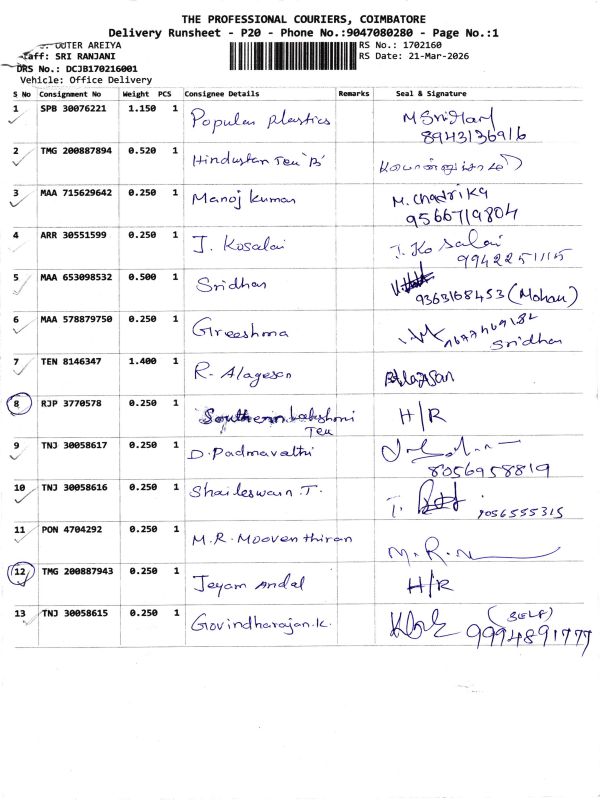 THE PROFESSIONAL COURIERS, COIMBATORE
Delivery Runsheet - P20 - Phone No.:9047080280 - Page No.:1
OUTER AREIYA RS No.: 1702160
Staff: SRI RANJANI RS Date: 21-Mar-2026
DRS No.: DCJB170216001
Vehicle: Office Delivery
S No Consignment No Weight PCS Consignee Details Remarks Seal & Signature
1 SPB 30076221 1.150 1 Popular plastics M Sridharl
8943136916
2 TMG 200887894 0.520 1 Hindustan Teu 'B'
3 MAA 715629642 0.250 1 Manoj kumar M. Chadrika
9566719804
4 ARR 30551599 0.250 1 J. Kosalai J. Kosalai
9942251115
5 MAA 653098532 0.500 1 Sridhar
9363168453 (Mohan)
6 MAA 578879750 0.250 1 Greeshma
Sridhar
7 TEN 8146347 1.400 1 R. Alagesan
8 RJP 3770578 0.250 1 Southern Lakshmi H/R
Teu
9 TNJ 30058617 0.250 1 D. Padmavathi
8056958819
10 TNJ 30058616 0.250 1 Shaileswari. T. T. 9056555315
11 PON 4704292 0.250 1 M.R. Mooventhiran M.R.
12 TMG 200887943 0.250 1 Jeyam Andal H/R
13 TNJ 30058615 0.250 1 Govindharajan.K. (SELF)
9994891777